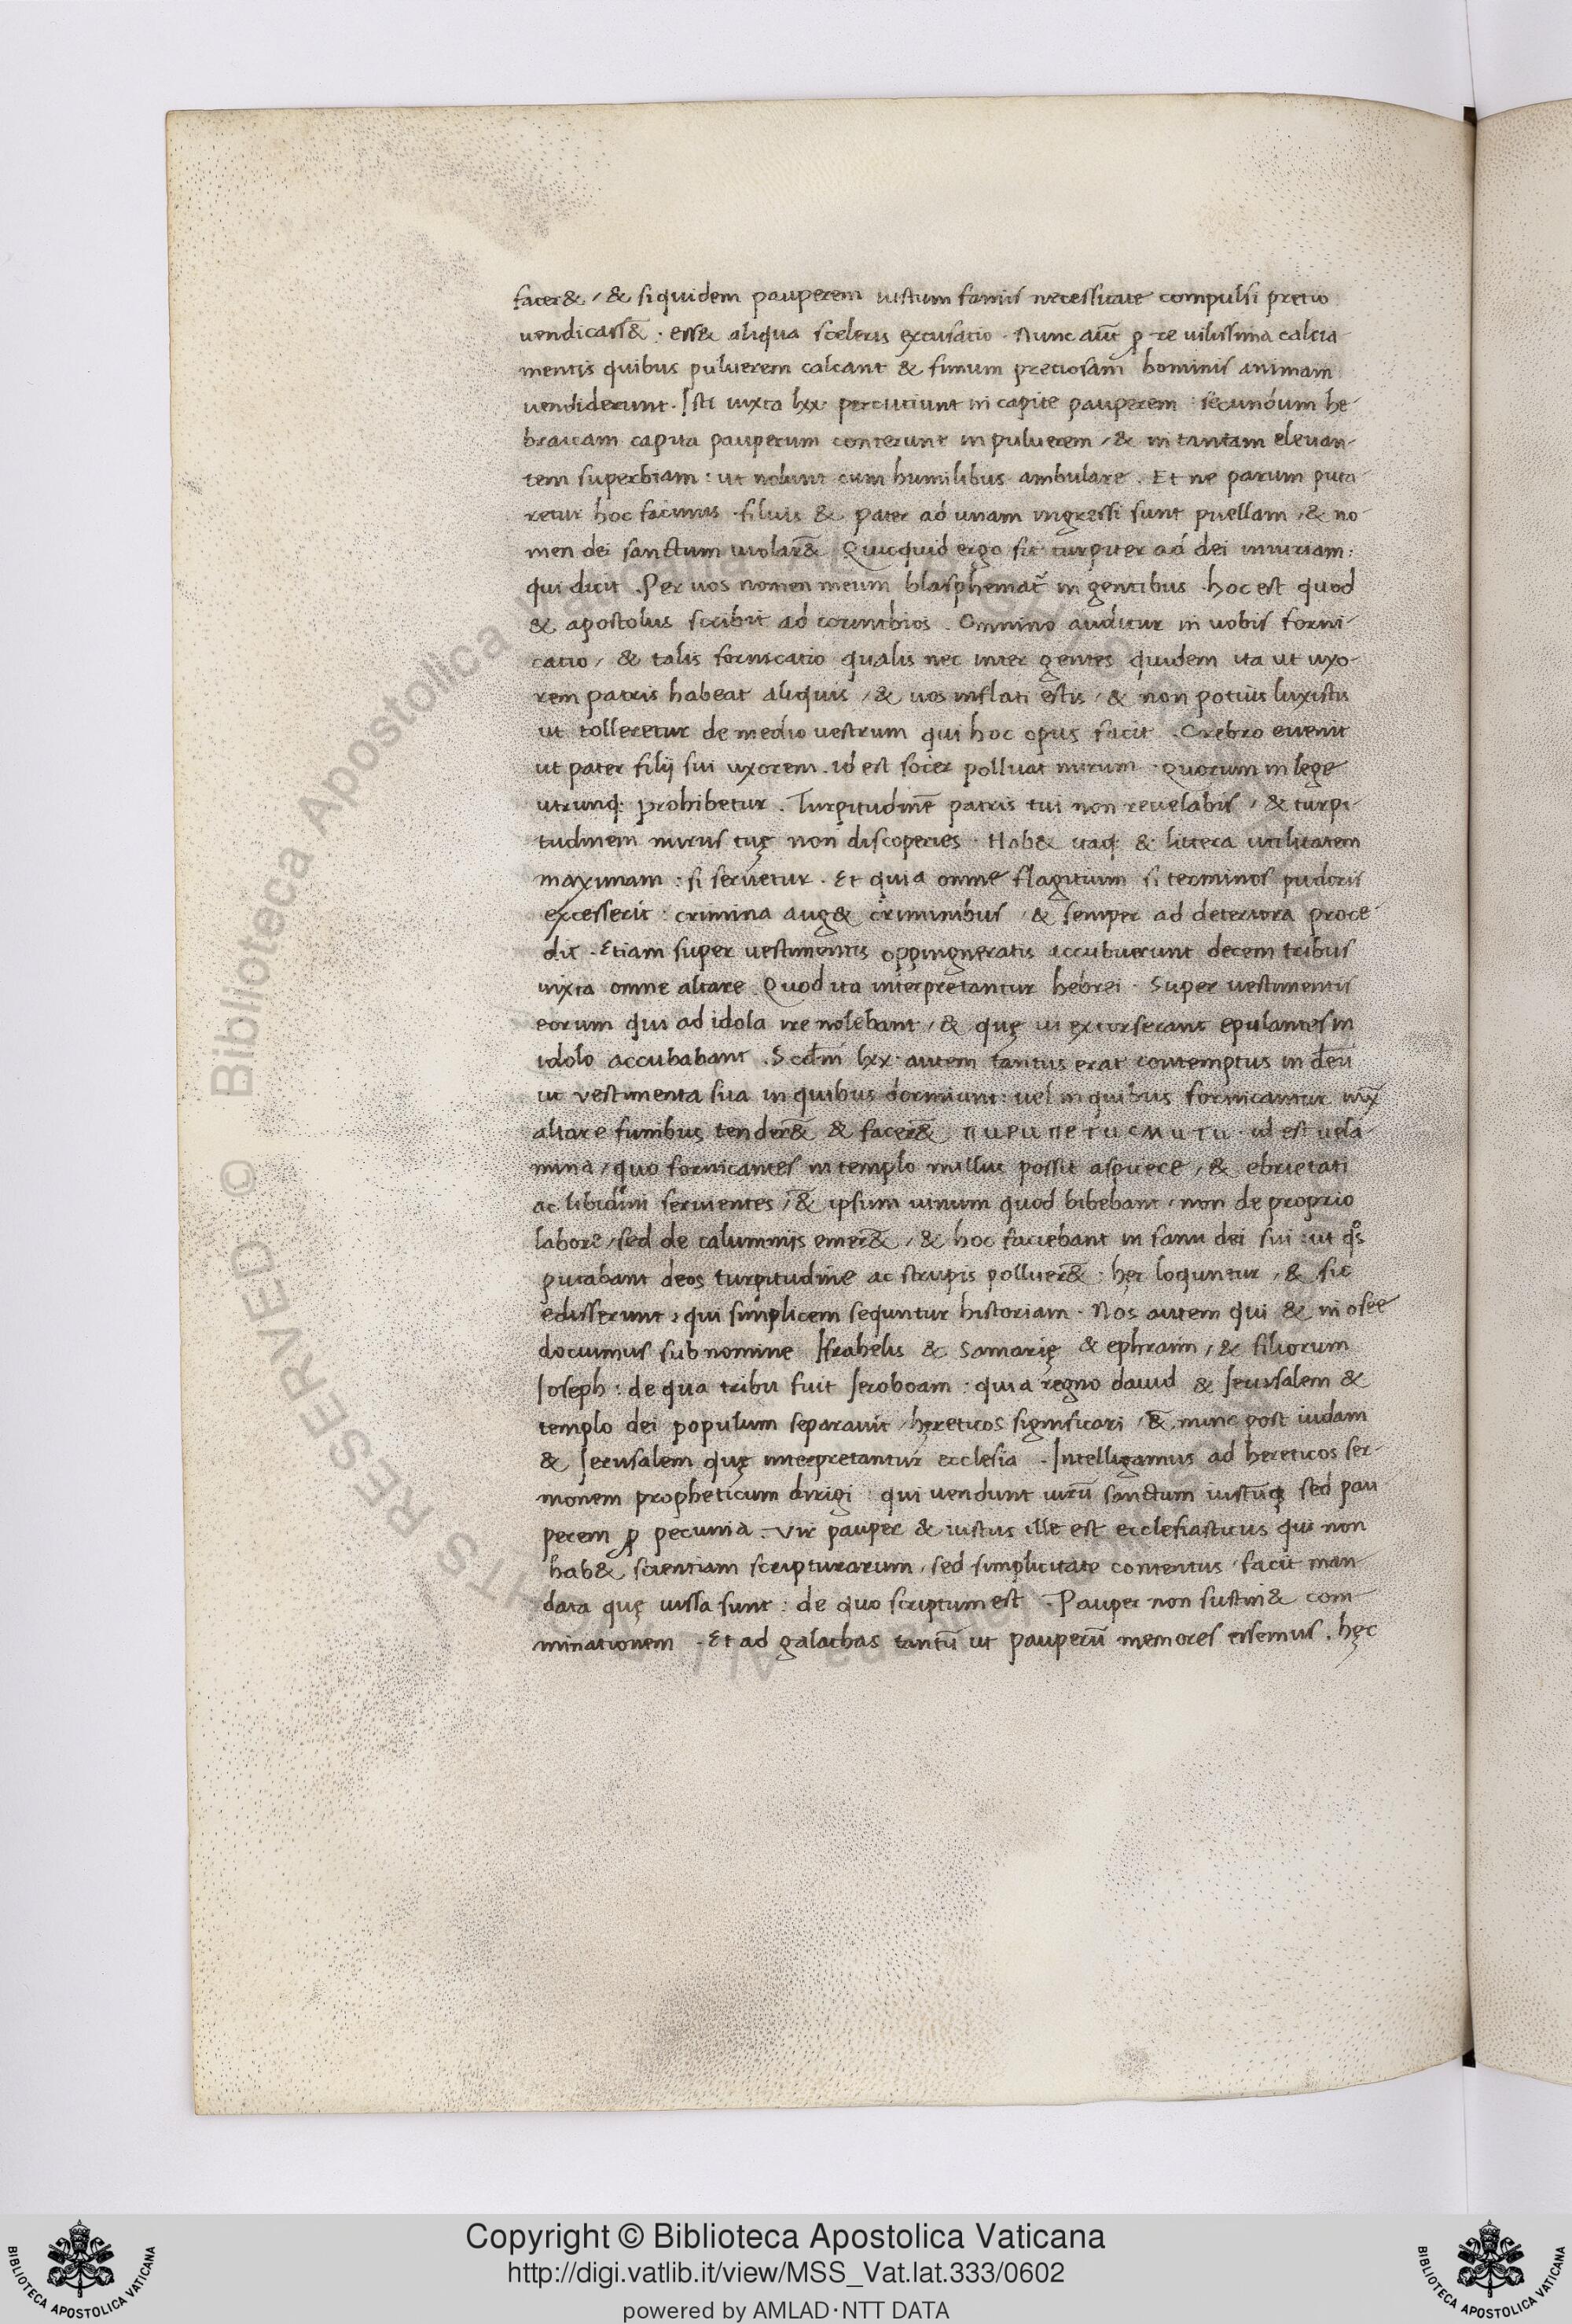 facer& / & siquidem pauperem iustum famis necessitate compulsi precio
vendicass&̄ · ess& aliqua sceleris excusatio · Nunc aut̄ ꝓ re vilissima calcia
mentis quibus puluerem calcant & fimum preciosam hominis animam
vendiderunt · Isti iuxta lxx percutiunt in capite pauperem : secundum he
braicam capita pauperum conterunt in puluerem / & in tantam eleuan-
tem superbiam : ut nolunt cum humilibus ambulare . Et ne parum puta
retur hoc facinus · filius & pater ad unam ingressi sunt puellam / & no
men dei sanctum violar&̄ Quicquid ergo fit turpiter ad dei iniuriam :
qui dicit . Per uos nomen meum blasphemat᷑ in gentibus · hoc est quod
& apostolus scribit ad corinthios . Omnino auditur in uobis forni-
catio / & talis fornicatio qualis nec inter gentes quidem ita ut uxo-
rem patris habeat aliquis / & uos inflati estis / & non potius luxistis
ut tolleretur de medio vestrum qui hoc opus facit . Crebro euenit
ut pater filij sui uxorem . id est socer polluat nurum · quorum in lege
utrunq: prohibetur . Turpitudinē patris tui non reuelabis / & turpi-
tudinem nurus tuę non discoperies · Hab& itaq: & littera utilitatem
maximam : si seruetur . Et quia omne flagitium si terminos pudoris
excesserit : crimina aug& criminibus / & semper ad deteriora proce-
dit · Etiam super vestimentis oppingneratis accubuerunt decem tribus
iuxta omne altare . Quod ita interpretantur hebrei · Super vestimentis
eorum qui ad idola ire nolebant / & quę ui excusserant epulantes in
idolo accubabant . Scdm̄ lxx · autem tantus erat contemptus in dēū
ut vestimenta sua in quibus dormiunt : uel in quibus fornicantur iux̄
altare funibus tender&̄ & facer&̄ id est uela
mina / quo fornicantes in templo nullus possit aspicere / & ebrietati
ac libidini seruientes / & ipsum uinum quod bibebant / non de proprio
labore / sed de calumnijs emer&̄ / & hoc faciebant in fanu dei sui : ut q̊s
putabant deos turpitudine ac strupis polluer&̄ : hęc loquntur / & sic
edisserunt / qui simplicem sequntur historiam · Nos autem qui & in osee
docuimus sub nomine Israhelis & Samarię & ephraim / & filiorum
Ioseph : de qua tribu fuit Ieroboam : qui a regno dauid & Ierusalem &
templo dei populum separauit / hereticos significari / & nunc post iudam
& Ierusalem quę interpretantur ecclesia · Intelligamus ad hereticos ser-
monem propheticum dirigi : qui vendunt uirū sanctum iustūq; sed pau
perem ꝓ pecunia . Vir pauper & iustus ille est ecclesiasticus qui non
hab& scientiam scripturarum / sed simplicitate contentus facit man-
data quę iussa sunt : de quo scriptum est . Pauper non sustin& com-
minationem . Et ad galathas tantū ut pauperū memores essemus . hęc
Copyright © Biblioteca Apostolica Vaticana
http://digi.vatlib.it/view/MSS_Vat.lat.333/0602
powered by AMLAD·NTT DATA
BIBLIOTECA APOSTOLICA VATICANA
BIBLIOTECA APOSTOLICA VATICANA